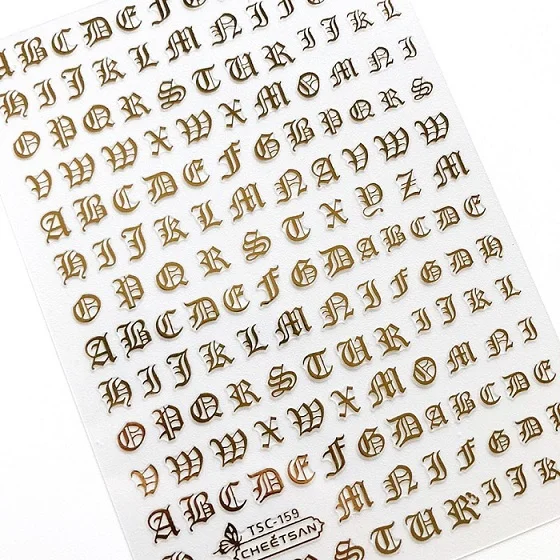 A B C D E F G
H I J K L M N I F G D H
O P Q R S T U R I J K L
V W W X W X M O M N I
A B C D E F G B P Q R S
H I J K L M N A V W W
O P Q R S T X Y Z M
A B C D E F G D A B C D E
H I J K L M N I F G D H
O P Q R S T U R I J K L
V W W X W X M O M N I
A B C D E F G D A B C D E
TSC-159
M N I F G D H
CHEETSAN
S T U R I J K